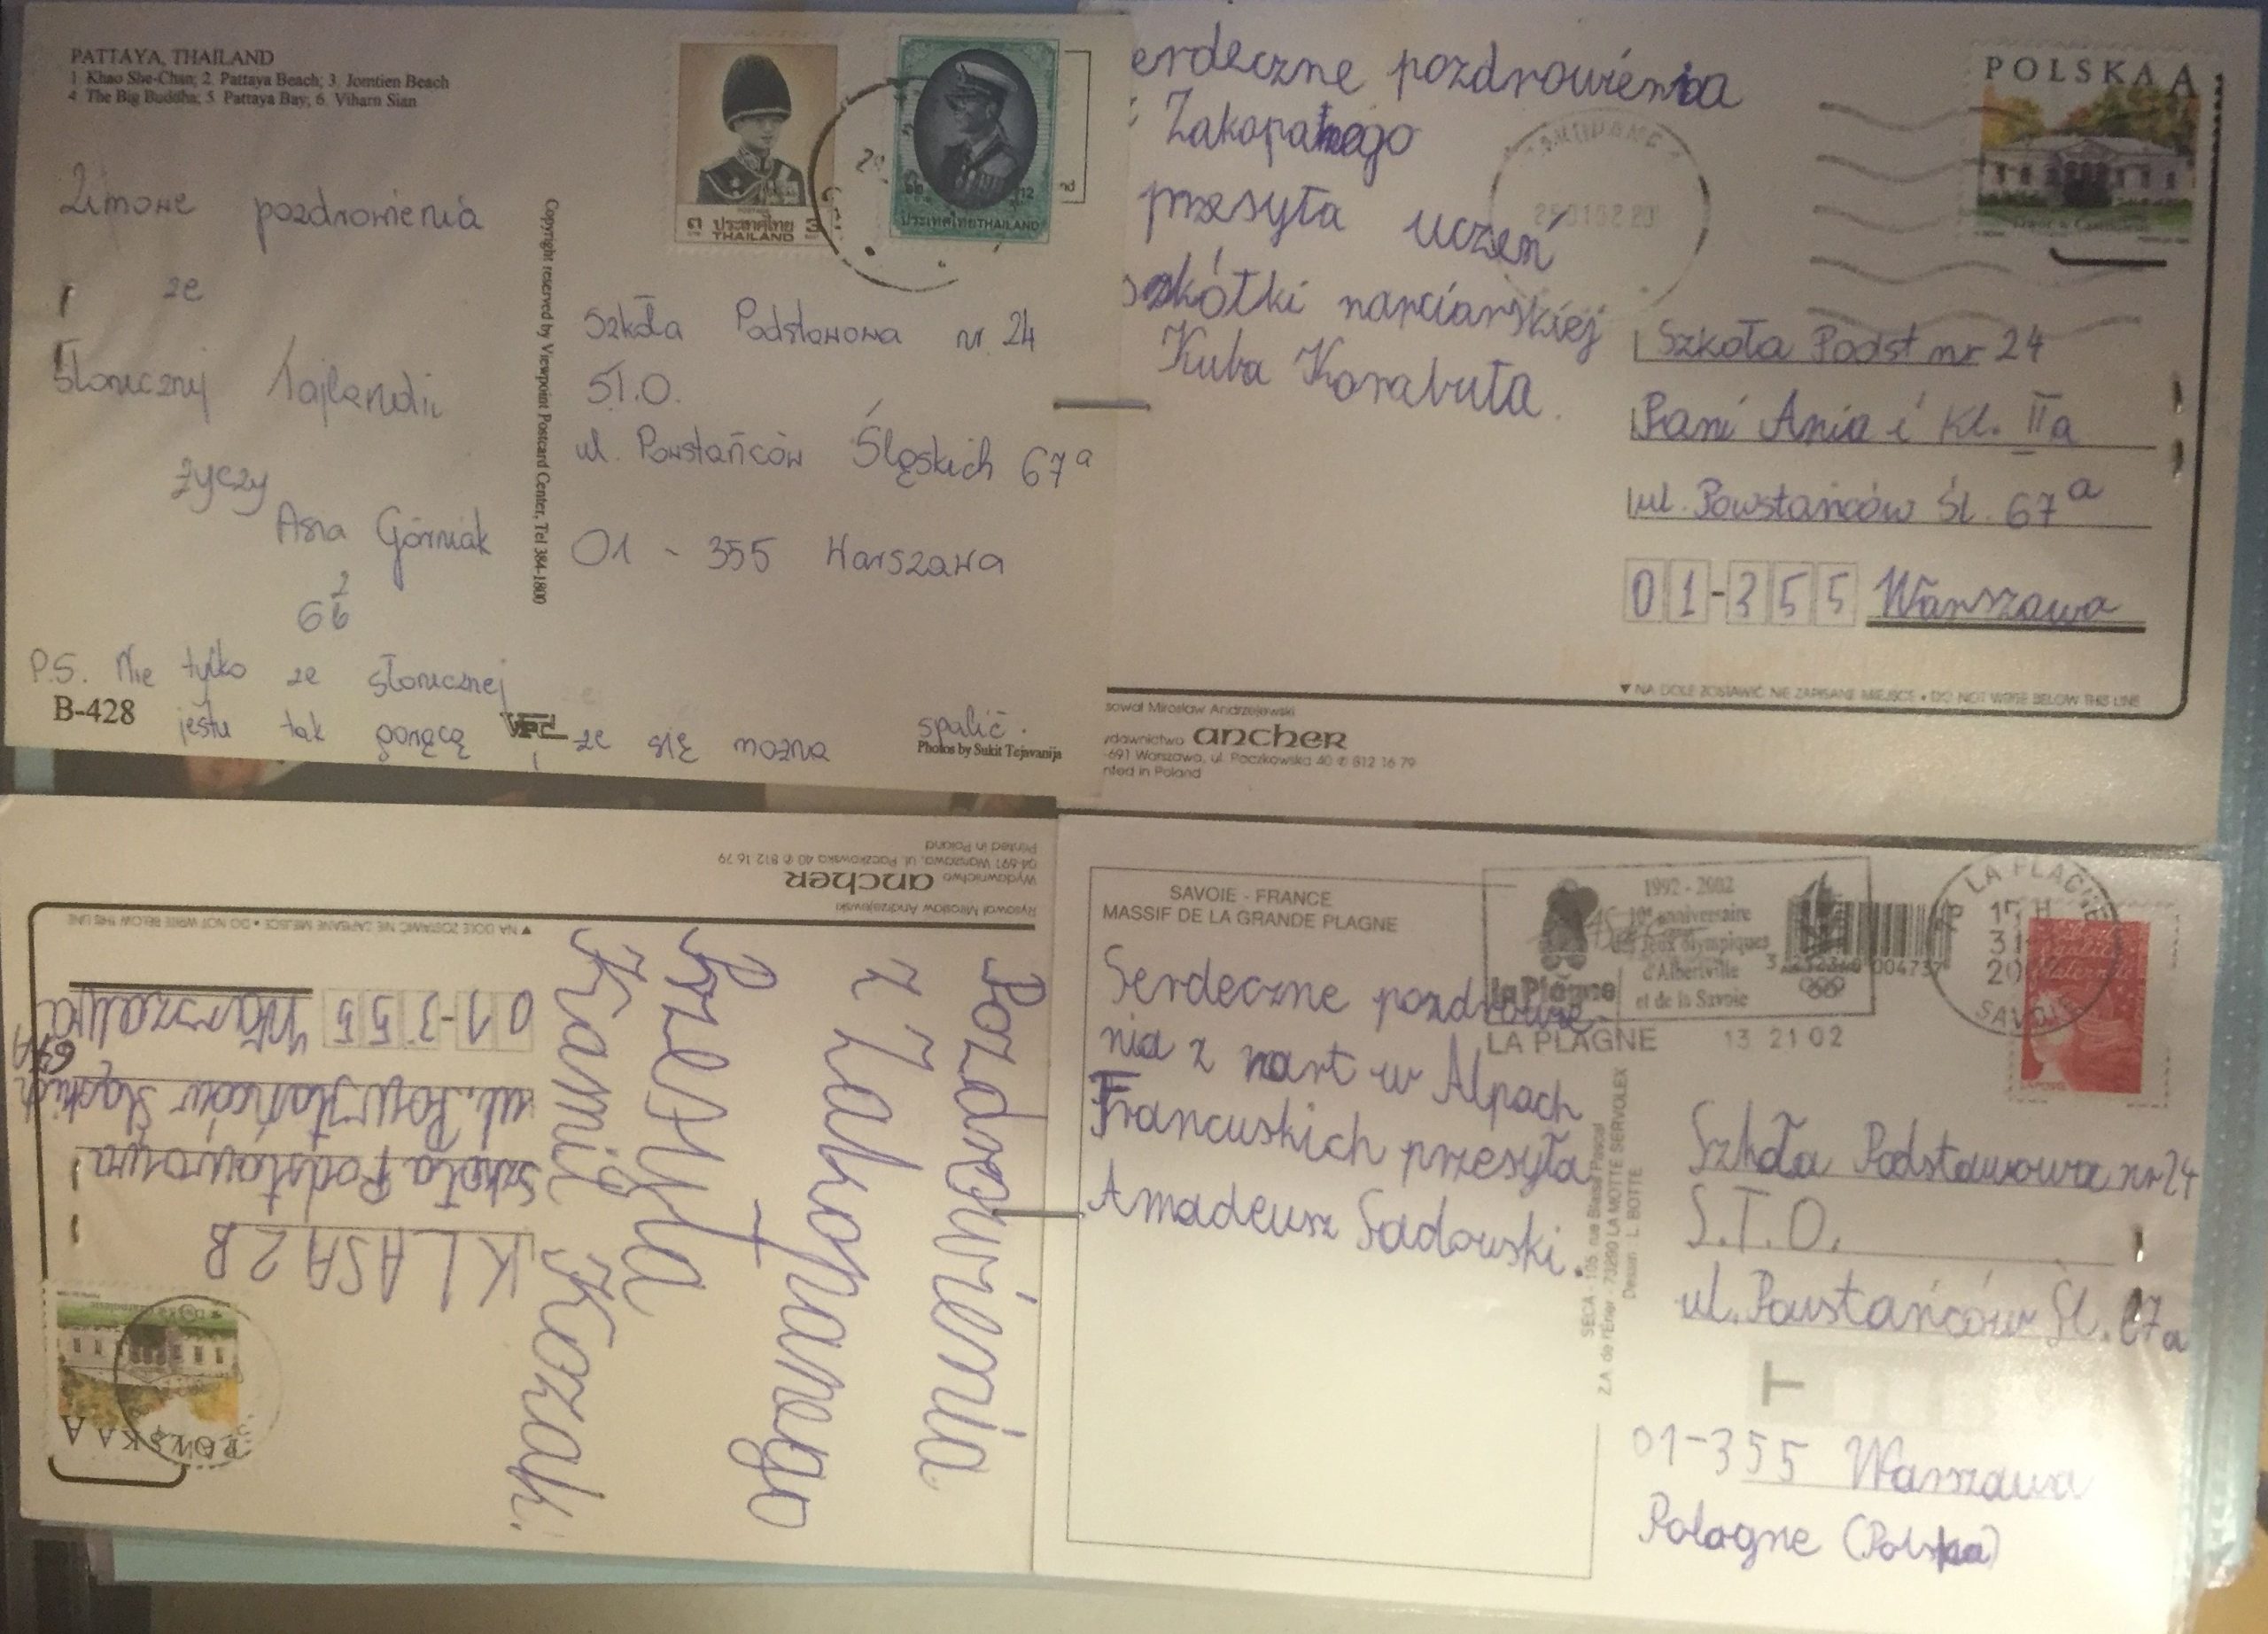 PATTAYA, THAILAND
1. Khao She-Chan; 2. Pattaya Beach; 3. Jomtien Beach
4. The Big Buddha; 5. Pattaya Bay; 6. Viharn Sian
Zimowe pozdrowienia
ze
Słonecznej Tajlandii
życzy
Asia Górniak
P.S. Nie tylko ze słonecznej
B-428
jestu tak gorąco
że można się
spalić.
Photos by Sukit Tejavanija
Copyright reserved by Viewpoint Postcard Center, Tel 384-1800
๓ ประเทศไทย 3
THAILAND
ประเทศไทย THAILAND
Szkoła Podstawowa nr. 24
S.T.O.
ul. Powstańców Śląskich 67a
01 - 355 Warszawa
erdeczne pozdrowienia
Zakopanego
przesyła uczeń
szkółki narciarskiej
Kuba Korabuta.
POLSKA A
Szkoła Podst nr 24
Pani Ania i Kl. IIa
ul. Powstańców Śl. 67a
01-355 Warszawa
▼ NA DOLE ZOSTAWIĆ NIE ZAPISANE MIEJSCE • DO NOT WRITE BELOW THIS LINE
sował Mirosław Andrzejewski
ydawnictwo ancher
-691 Warszawa, ul. Paczkowska 40 ✆ 812 16 79
nted in Poland
Pozdrowienia
z Zakopanego
Przesyła
Kamil Kozak.
POLSKA A
KLASA 2B
Szkoła Podstawowa
ul. Powstańców Śląskich
67A
01-355 Warszawa
▼ NA DOLE ZOSTAWIĆ NIE ZAPISANE MIEJSCE • DO NOT WRITE BELOW THIS LINE
Rysował Mirosław Andrzejewski
Wydawnictwo ancher
04-691 Warszawa, ul. Paczkowska 40 ✆ 812 16 79
Printed in Poland
SAVOIE - FRANCE
MASSIF DE LA GRANDE PLAGNE
Serdeczne pozdrowie-
nia z nart w Alpach
Francuskich przesyła
Amadeusz Sadowski.
la Plagne
1992 - 2002
10e anniversaire
Jeux olympiques
d'Albertville
et de la Savoie
LA PLAGNE 13 21 02
LA PLAGNE
SAVOIE
SECA - 105, rue Blaise Pascal
Z.A. de l'Erier - 73290 LA MOTTE SERVOLEX
Dessin : L. BOTTE
Szkoła Podstawowa nr 24
S.T.O.
ul. Powstańców Śl. 67a
T
01-355 Warszawa
Pologne (Polska)